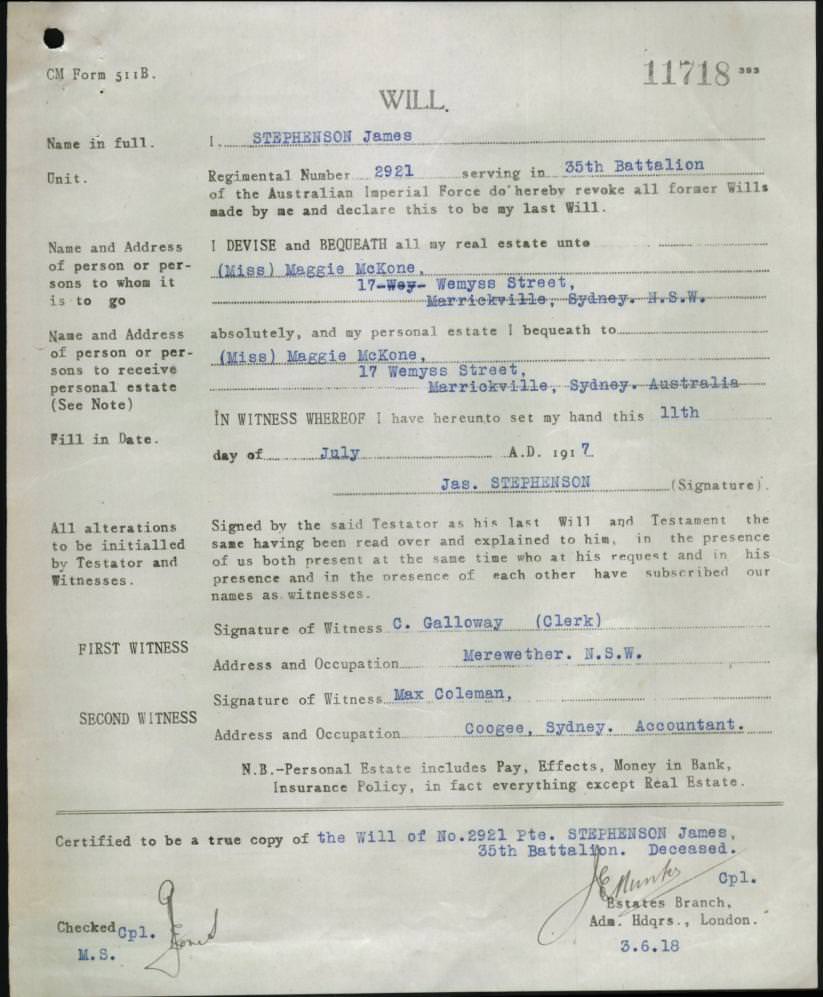 CM Form 511B.
11718 393
WILL.
Name in full. I, STEPHENSON James
Unit. Regimental Number 2921 serving in 35th Battalion
of the Australian Imperial Force do hereby revoke all former Wills
made by me and declare this to be my last Will.
Name and Address I DEVISE and BEQUEATH all my real estate unto
of person or per-
sons to whom it (Miss) Maggie McKone,
is to go 17 Wey- Wemyss Street,
Marrickville, Sydney. N.S.W.
Name and Address absolutely, and my personal estate I bequeath to
of person or per-
sons to receive (Miss) Maggie McKone,
personal estate 17 Wemyss Street,
(See Note) Marrickville, Sydney. Australia
IN WITNESS WHEREOF I have hereunto set my hand this 11th
Fill in Date.
day of July A.D. 1917
Jas. STEPHENSON (Signature).
All alterations Signed by the said Testator as his last Will and Testament the
to be initialled same having been read over and explained to him, in the presence
by Testator and of us both present at the same time who at his request and in his
Witnesses. presence and in the presence of each other have subscribed our
names as witnesses.
Signature of Witness C. Galloway (Clerk)
FIRST WITNESS
Address and Occupation Merewether. N.S.W.
Signature of Witness Max Coleman,
SECOND WITNESS
Address and Occupation Coogee, Sydney. Accountant.
N.B.-Personal Estate includes Pay, Effects, Money in Bank,
Insurance Policy, in fact everything except Real Estate.
Certified to be a true copy of the Will of No.2921 Pte. STEPHENSON James,
35th Battalion. Deceased.
Cpl.
Estates Branch,
Adm. Hdqrs., London.
Checked Cpl. Jones
M.S.
3.6.18